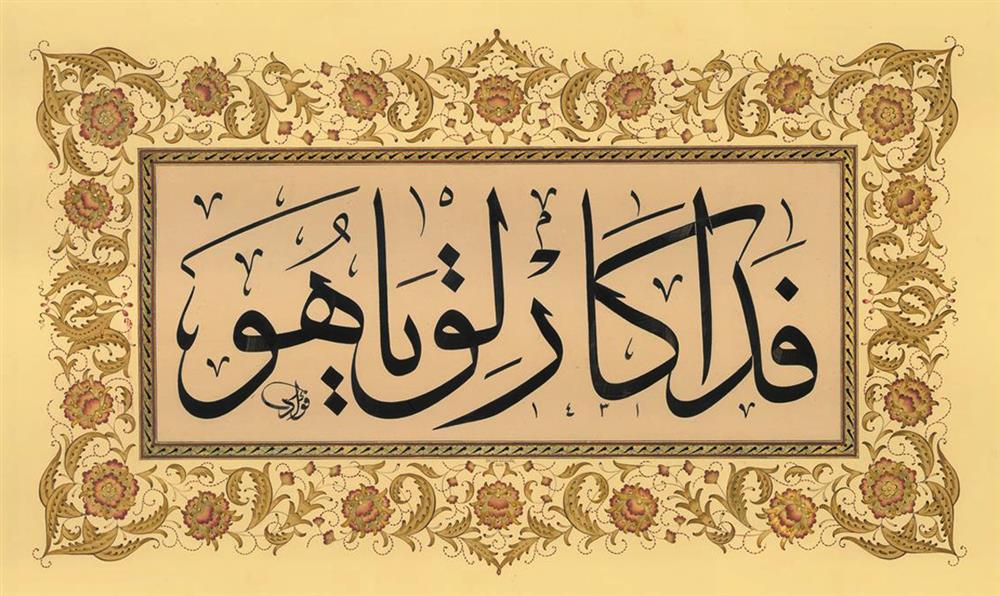 فداكارلق ياهو
١٤٣١
فؤاد